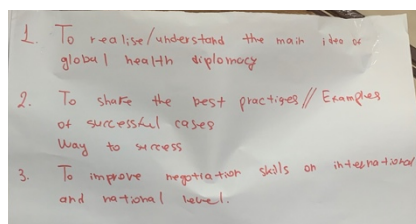 1. To realise/understand the main idea of
global health diplomacy
2. To share the best practices // Examples
of successful cases
Way to success
3. To improve negotiation skills on international
and national level.